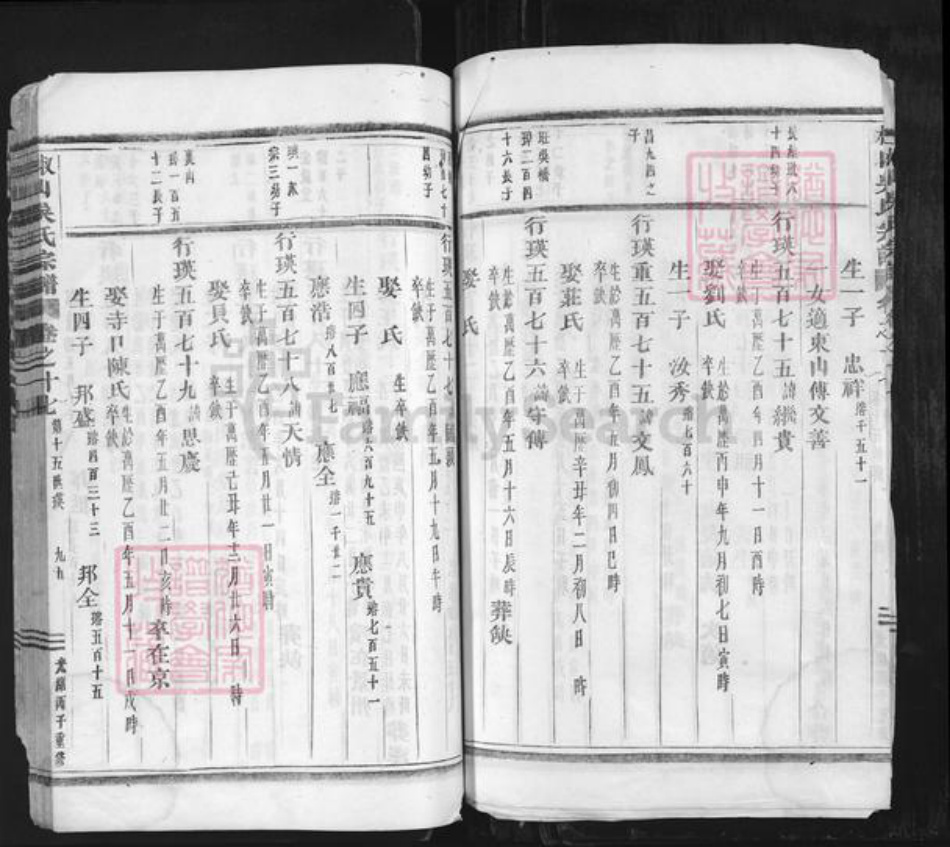 生一子 忠祥 瑢千五十一
一女適東山傅文善
行瑛五百七十五 諱 貴
生于萬歷乙酉年四月十一日酉時
卒缺
娶劉氏 生於萬歷丙申年九月初七日寅時
卒缺
生一子 汝秀 瑢七百六十
昌九四之
子
行瑛重五百七十五 諱文鳳
生於萬歷乙酉年五月初四日巳時
卒缺
娶莊氏 生于萬歷辛丑年二月初八日 時
卒缺
班吳橋
琕二百四
十六長子
行瑛五百七十六 諱守傅
生於萬歷乙酉年五月十六日辰時
卒缺 葬缺
娶 氏
四幼子
行瑛五百七十七
生于萬歷乙酉年五月十九日午時
卒缺
娶 氏 生卒缺
生四子 應福 瑢六百九十五 應貴 瑢七百五十一
應浩 瑢八百廿七 應全 瑢一千廿二
宗三幼子
行瑛五百七十八 諱天情
生于萬歷乙酉年五月廿一日寅時
卒缺
娶貝氏 生于萬歷己丑年十二月廿六日 時
卒缺
裏山
琕一百五
十二長子
行瑛五百七十九 諱思慶
生于萬歷乙酉年五月廿二日亥時 卒在京
娶寺口陳氏 生於萬歷乙酉年五月十一日戌時
卒缺
生四子 邦盛 瑢四百三十三 邦全 瑢五百十五
椒山吳氏宗譜 卷之十七 第十五世瑛 九五 光緒丙子重修
FamilySearch